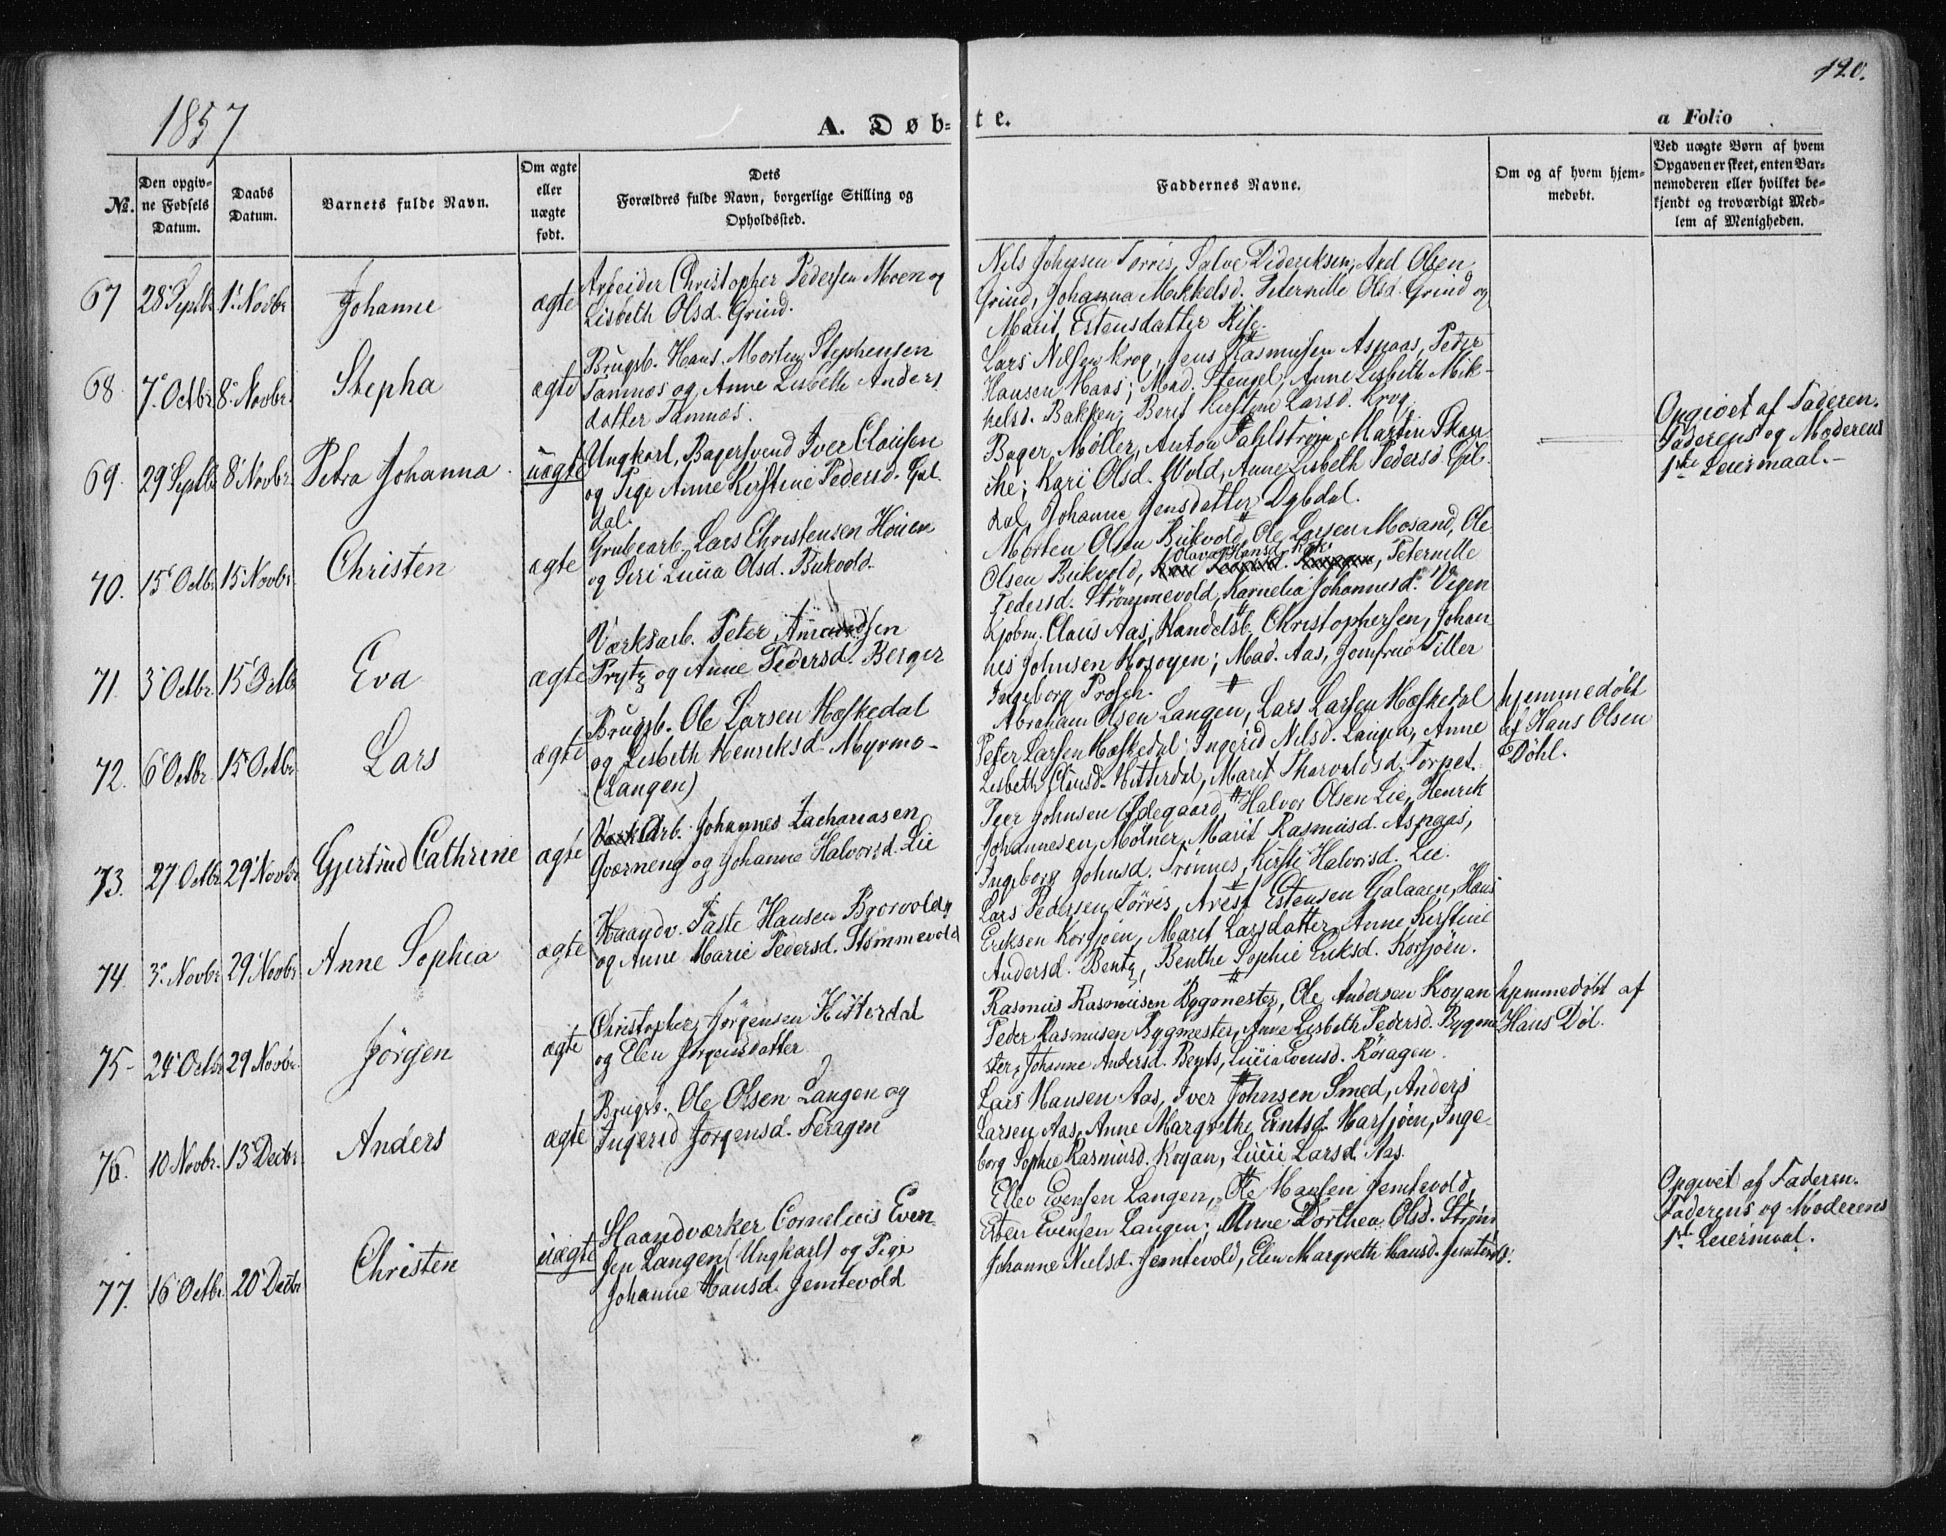 1857
A. Døb-
te.
120.
a Folio
No.
Den opgiv-
ne Fødsels
Datum.
Daabs
Datum.
Barnets fulde Navn.
Om ægte
eller
uægte
født.
Dets
Forældres fulde Navn, borgerlige Stilling og
Opholdssted.
Faddernes Navne.
Om og af hvem hjem-
medøbt.
Ved uægte Børn af hvem
Opgaven er skeet, enten Bar-
nemoderen eller hvilket be-
kjendt og troværdigt Med-
lem af Menigheden.
67
28 Septb
1 Novbr
Johanne
ægte
Arbeider Christopher Pedersen Moen og
Lisbeth Olsd. Grind.
Nils Johnsen Torres, Salve Dideriksen, And Olsen
Grind, Johanna Mikkelsd. Peternille Olsd. Grind og
Marit Estensdatter Rise.
68
7. Octbr.
8. Novbr.
Stepha
ægte
Brugsb. Hans Morten Stephensen
Tamnæs og Anne Lisbeth Anders
datter Tamnæs.
Lars Nilsen Krog, Jens Rasmusen Aspaas, Peder
Hansen Naas; Mad. Stengel, Anne Lisbeth Mik-
kelsd. Bakken, Berit Kirstine Larsd. Krog.
69.
29 Septb
8 Novbr.
Petra Johanna
uægte
Ungkarl, Bagersvend Iver Clausen
og Pige Anne Kirstine Pedersd. Gul
dal.
Bager Møller, Anton Fahlstrøm, Martin Skan
che; Kari Olsd. Wold, Anne Lisbeth Pedersd. Gul-
dal, Johanne Jensdatter Dybdal.
Opgivet af Faderen.
Faderens og Moderens
1ste Leiermaal.-
70.
15 Octbr.
15 Novbr.
Christen
ægte
Grubearb. Lars Christensen Houen
og Siri Lucia Olsd. Bukvold.
Morten Olsen Bukvold, Ole Larsen Mosand, Ole
Olsen Bukvold, Olava Hansd. Peternille
Pedersd. Strømmevold, Karnelia Johannesd. Vegen
71.
3 Octbr.
15 Octbr
Eva
ægte
Værksarb. Peter Amundsen
Prytz og Anne Pedersd. Berger
Kjøbm. Claus Aas, Handelsb. Christophersen, Johan
nes Johnsen Mosoyen; Mad. Aas, Jomfrue Tiller
Ingeborg Prosch.
72.
6 Octbr.
15 Octbr.
Lars
ægte
Brugsb. Ole Larsen Hæskedal
og Lisbeth Henriksd. Myrmo-
(Langen)
Abraham Olsen Langen, Lars Larsen Hæskedal
Peter Larsen Hæskedal; Ingerid Nilsd. Langen, Anne
Lisbeth Hitterdal, Marit Tharvaldsd. Torpet.
hjemmedøbt
af Hans Olsen
Døhl.
73.
27 Octbr.
29 Novbr
Gjertrud Cathrine
ægte
Arb. Johannes Zachariasen
Qværneng og Johanne Halvorsd. Lie
Peer Johnsen Ødegaard, Halvor Olsen Lie, Henrik
Johannesen Molner, Marit Rasmusd. Aspaas,
Ingeborg Johnsd. Trønnes, Kirsti Halvorsd. Lie.
74.
3. Novbr.
29 Novbr.
Anne Sophia
ægte
Haandv. Faste Hansen Borvold
og Anne Marie Pedersd. Strømmevold
Lars Pedersen Torres, Arest Estensen Galaaen, Hans
Eriksen Korssjøen, Marit Larsdatter, Anne Kirstine
Andersd. Bentz, Benthe Sophie Eriksd. Korsjøen.
75-
24 Octbr
29 Novbr.
Jörgen
ægte
Christopher Jørgensen Hitterdal
og Elen Jørgensdatter
Rasmus Rasmusen Bygmester, Ole Andersen Koyan
Peder Rasmusen Bygmester, Anne Lisbeth Pedersd. Bygme
ster, Johanne Andersd. Bents, Lucia Evensd. Røragen.
hjemmedøbt af
Hans Døl.
76.
10 Novbr.
13 Decbr.
Anders
ægte
Brugsb. Ole Olsen Langen og
Ingerid Jørgensd. Feragen
Lars Hansen Aas, Iver Johnsen Smed, Anders
Larsen Aas, Anne Margrethe Harsjøen, Inge-
borg Sophie Rasmusd. Koyan, Lucie Larsd. Aas.
77.
16 Octbr.
20 Decbr
Christen
uægte
Haandværker Cornelius Even
sen Langen (Ungkarl) og Pige
Johanne Hansd. Jemtevold
Ellev Evensen Langen, Ole Hansen Jemtevold,
Esten Evensen Langen; Anne Dorthea Olsd. Strøm
Johanne Nielsd. Jemtevold, Elen Margreth Hansd. Jemtevold.
Opgivet af Faderen.
Faderens og Moderens
1ste Leiermaal.